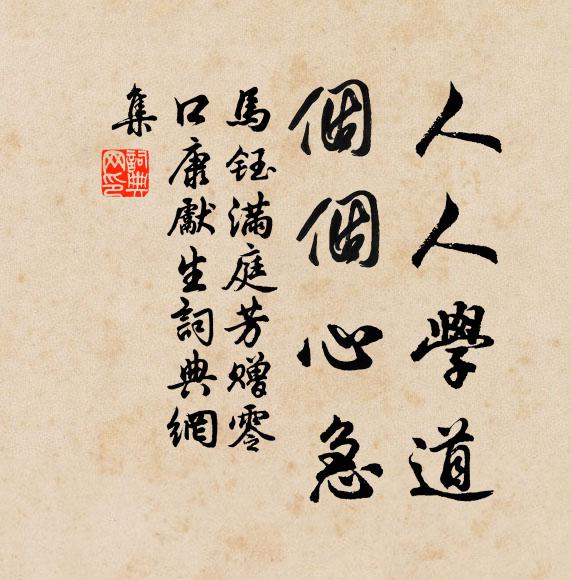 人人學道
個個心急
馬鈺滿庭芳贈零
口康獻生詞典網
集
詞典網印